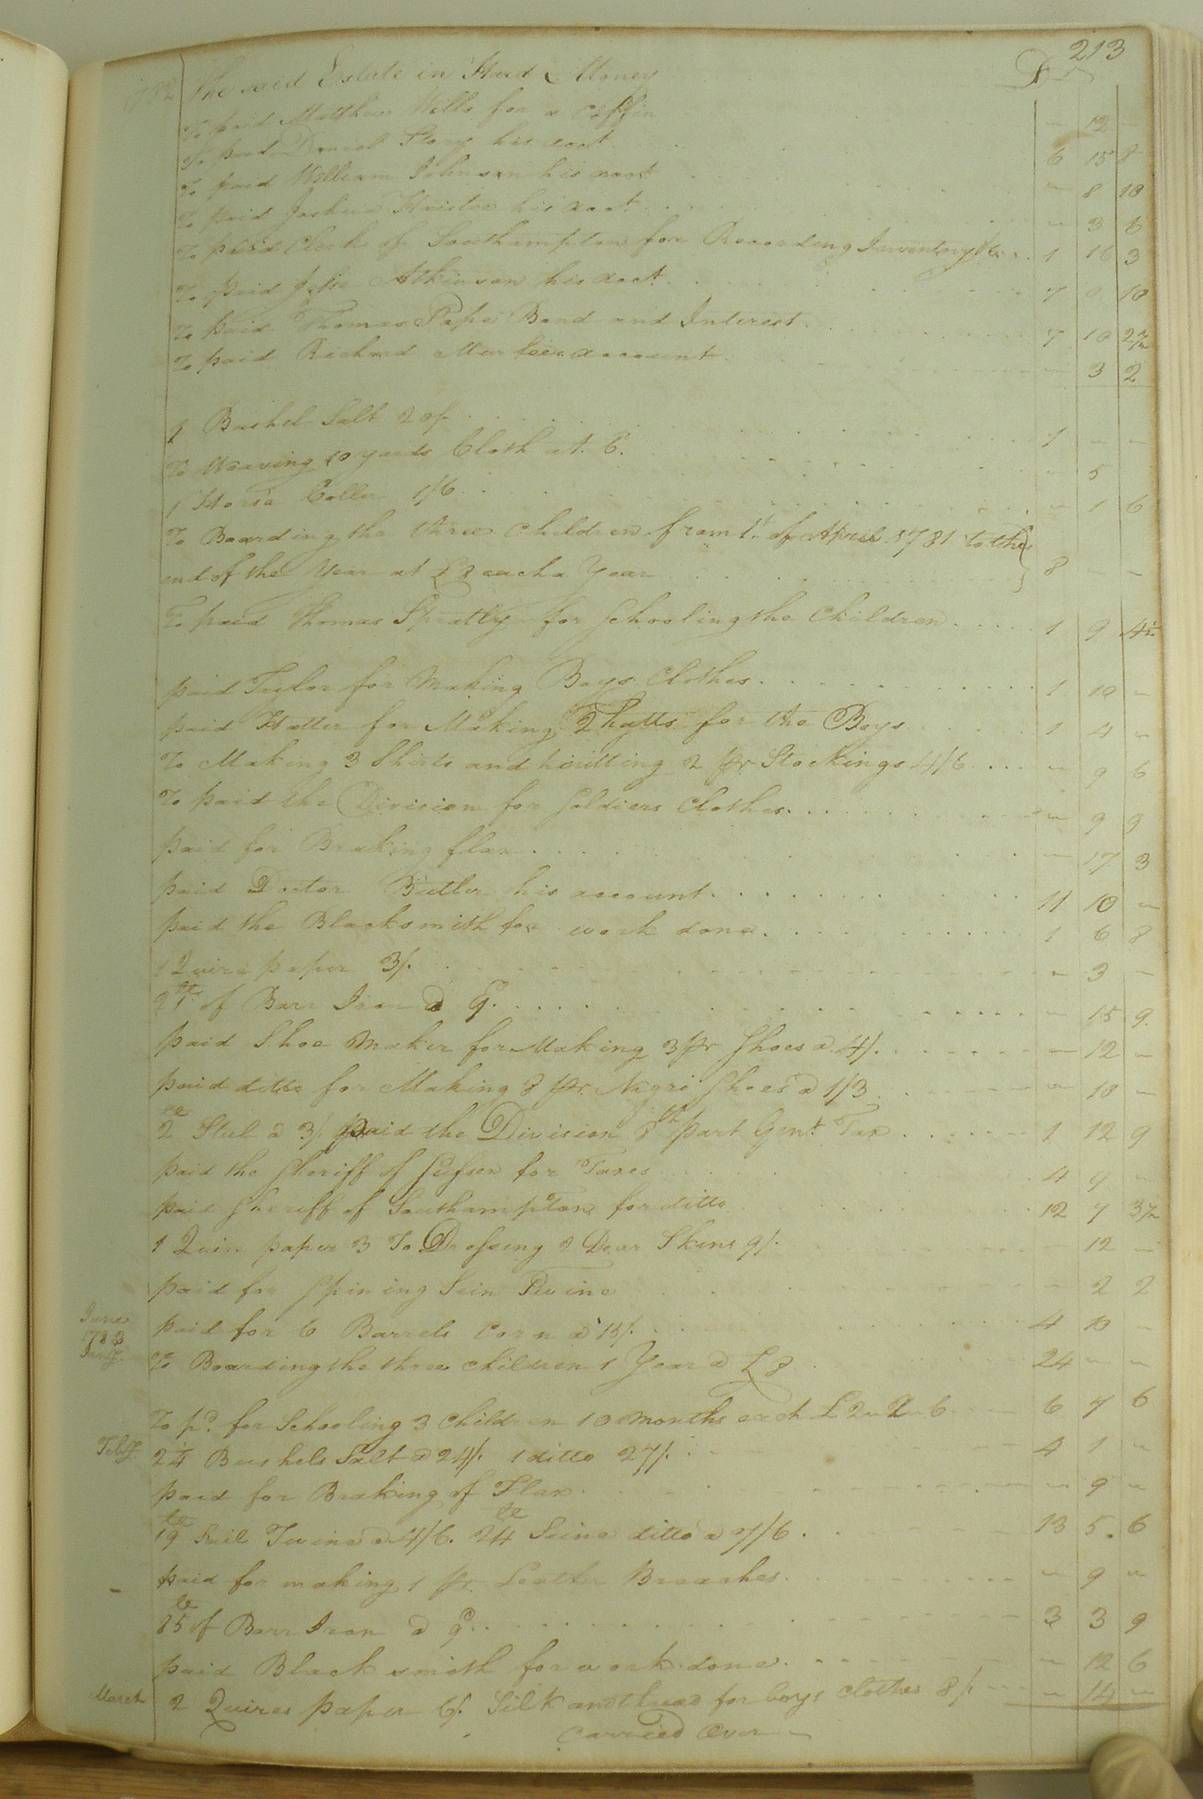 213
1782 The said Estate in Hard Money Dr
To paid Matthew Wills for a Coffin - 12 -
To paid Daniel his acct 6 15 8
To paid William Johnson his acct - 8 10
To paid Joshua his acct - 3 8
To paid Clerk of Southampton for Recording Inventory &c 1 16 3
To paid Jesse Atkinson his acct 7 0 10
To paid Thomas Pope Bond and Interest 7 10 2½
To paid Richard account - 3 2
1 Bushel Salt 20/. 1 - -
To Weaving 10 yards Cloth at 6. - 5
1 Horse Coller 1/6 - 1 6
To Boarding the three Children from 1st of April 1781 to the
end of the Year at £ each a Year 8 - -
To paid Thomas Spratly for Schooling the Children 1 9 4½
paid Taylor for Making Boys Clothes 1 10 -
paid Hatter for Making 2 hatts for the Boys 1 4 -
To Making 3 Shirts and knitting 2 pr Stockings 4/6 - 9 6
To paid the Division for Soldiers Clothes - 9 9
paid for Braking flax - 17 3
paid Doctor Butler his account 11 10 -
paid the Blacksmith for work done 1 6 8
1 Quire paper 3/. - 3 -
21 lb of Barr Iron @ 9. - 15 9
paid Shoe Maker for Making 3 pr Shoes @ 4/. - 12 -
paid ditto for Making 8 pr Negro Shoes @ 1/3 - 10 -
2 lb Steel @ 3/ paid the Division 8th part Gent. Tax 1 12 9
paid the Sheriff of for Taxes 4 9 -
paid Sheriff of Southampton for ditto 12 7 3½
1 Quire paper 3 To Dressing 2 Dear Skins 9/. 12 -
paid for Spining Sein Twine - 2 2
June
1783
paid for 6 Barrels Corn @ 15/. 4 10 -
Jany.
To Boarding the three Children 1 Year @ £8 24 - -
To pd. for Schooling 3 Children 10 Months each £2..2..6 6 7 6
Feby
2¼ Bushels Salt @ 24/. 1 ditto 27/. 4 1 -
paid for Braking of Flax - 9 -
19 lb Twine @ 4/6. 24 lb Seine ditto @ 7/6. 13 5. 6
paid for making 1 pr. Leather Breaches - 9 -
85 lb of Barr Iron @ 9. 3 3 9
paid Black smith for work done - 12 6
March
2 Quires paper 6/. Silk and thread for boys clothes 8/ - 14 -
Carried Over